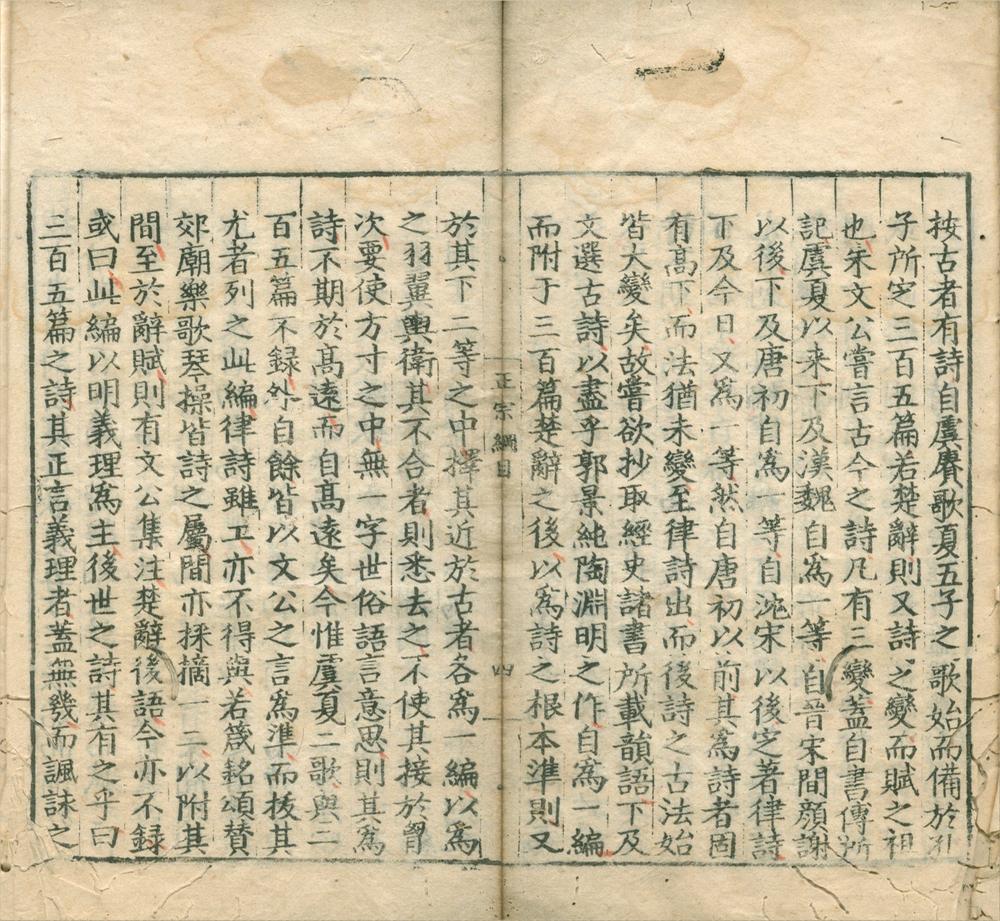 按古者有詩自虞賡歌夏五子之歌始而備於孔
子所定三百五篇若楚辭則又詩之變而賦之祖
也朱文公嘗言古今之詩凡有三變蓋自書傳所
記虞夏以来下及漢魏自為一等自晉宋間顔謝
以後下及唐初自為一等自沈宋以後定著律詩
下及今日又為一等然自唐初以前其為詩者固
有高下而法猶未變至律詩出而後詩之古法始
皆大變矣故嘗欲抄取經史諸書所載韻語下及
文選古詩以盡乎郭景純陶淵明之作自為一編
而附于三百篇楚辭之後以為詩之根本準則又
正宗綱目
四
於其下二等之中擇其近於古者各為一編以為
之羽翼輿衛其不合者則悉去之不使其接於胷
次要使方寸之中無一字世俗語言意思則其為
詩不期於高遠而自高遠矣今惟虞夏二歌與三
百五篇不録外自餘皆以文公之言為準而拔其
尤者列之此編律詩雖工亦不得與若箴銘頌賛
郊廟樂歌琴操皆詩之屬間亦採摘一二以附其
間至於辭賦則有文公集注楚辭後語今亦不録
或曰此編以明義理為主後世之詩其有之乎曰
三百五篇之詩其正言義理者蓋無幾而諷詠之